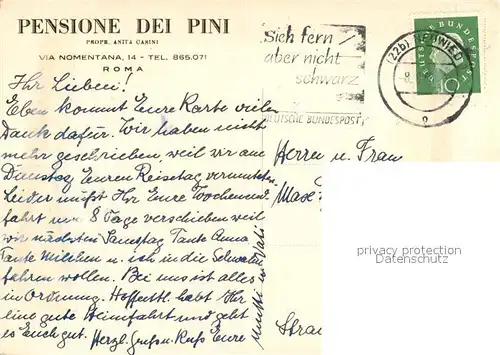 PENSIONE DEI PINI
PROPR. ANITA CASINI
VIA NOMENTANA, 14 - TEL. 865.071
ROMA
Sich fern
aber nicht
schwarz
DEUTSCHE BUNDESPOST
(22b) NEUWIED
DEUTSCHE BUNDESPOST
10
Ihr Lieben!
Eben kommt Eure Karte vielen
Dank dafür. Wir haben nicht
mehr geschrieben, weil wir am
Dienstag Euren Reisetag vermuteten.
Leider müßt Ihr Eure Wochenend
fahrt um 8 Tage verschieben weil
wir nächsten Samstag Tante Anna,
Tante Milchen u. ich in die
fahren wollen. Bei uns ist alles
in Ordnung. Hoffentl. habt Ihr
eine gute Heimfahrt und geht
es Euch gut. Herzl. Gruß u. Kuß Eure
Mutti u. Vati
Herrn u. Frau
Max
Stra
privacy protection
AKPool.de